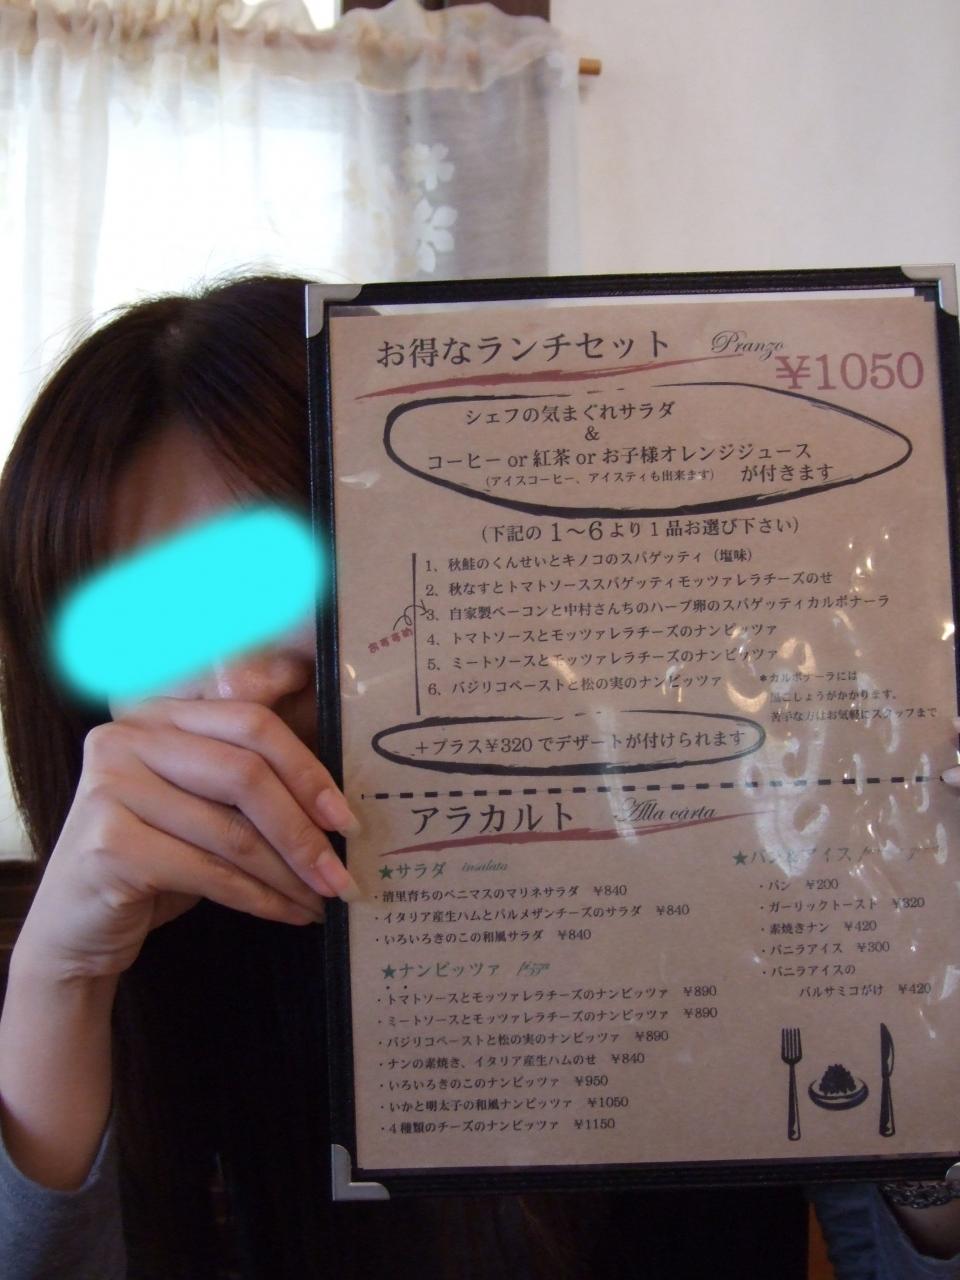 お得なランチセット Pranzo
¥1050
シェフの気まぐれサラダ
&
コーヒー or 紅茶 or お子様オレンジジュース
(アイスコーヒー、アイスティも出来ます) が付きます
(下記の 1～6 より 1 品お選び下さい)
1、秋鮭のくんせいとキノコのスパゲッティ (塩味)
2、秋なすとトマトソーススパゲッティモッツァレラチーズのせ
3、自家製ベーコンと中村さんちのハーブ卵のスパゲッティカルボナーラ
おすすめ
4、トマトソースとモッツァレラチーズのナンピッツァ
5、ミートソースとモッツァレラチーズのナンピッツァ
6、バジリコペーストと松の実のナンピッツァ
＊カルボナーラには
黒こしょうがかかります。
苦手な方はお気軽にスタッフまで
+プラス¥320 でデザートが付けられます
アラカルト Alla carta
★サラダ insalata
・清里育ちのベニマスのマリネサラダ ¥840
・イタリア産生ハムとパルメザンチーズのサラダ ¥840
・いろいろきのこの和風サラダ ¥840
★ナンピッツァ pizza
・トマトソースとモッツァレラチーズのナンピッツァ ¥890
・ミートソースとモッツァレラチーズのナンピッツァ ¥890
・バジリコペーストと松の実のナンピッツァ ¥890
・ナンの素焼き、イタリア産生ハムのせ ¥840
・いろいろきのこのナンピッツァ ¥950
・いかと明太子の和風ナンピッツァ ¥1050
・4種類のチーズのナンピッツァ ¥1150
★パン&アイス
・パン ¥200
・ガーリックトースト ¥320
・素焼きナン ¥420
・バニラアイス ¥300
・バニラアイスの
バルサミコがけ ¥420